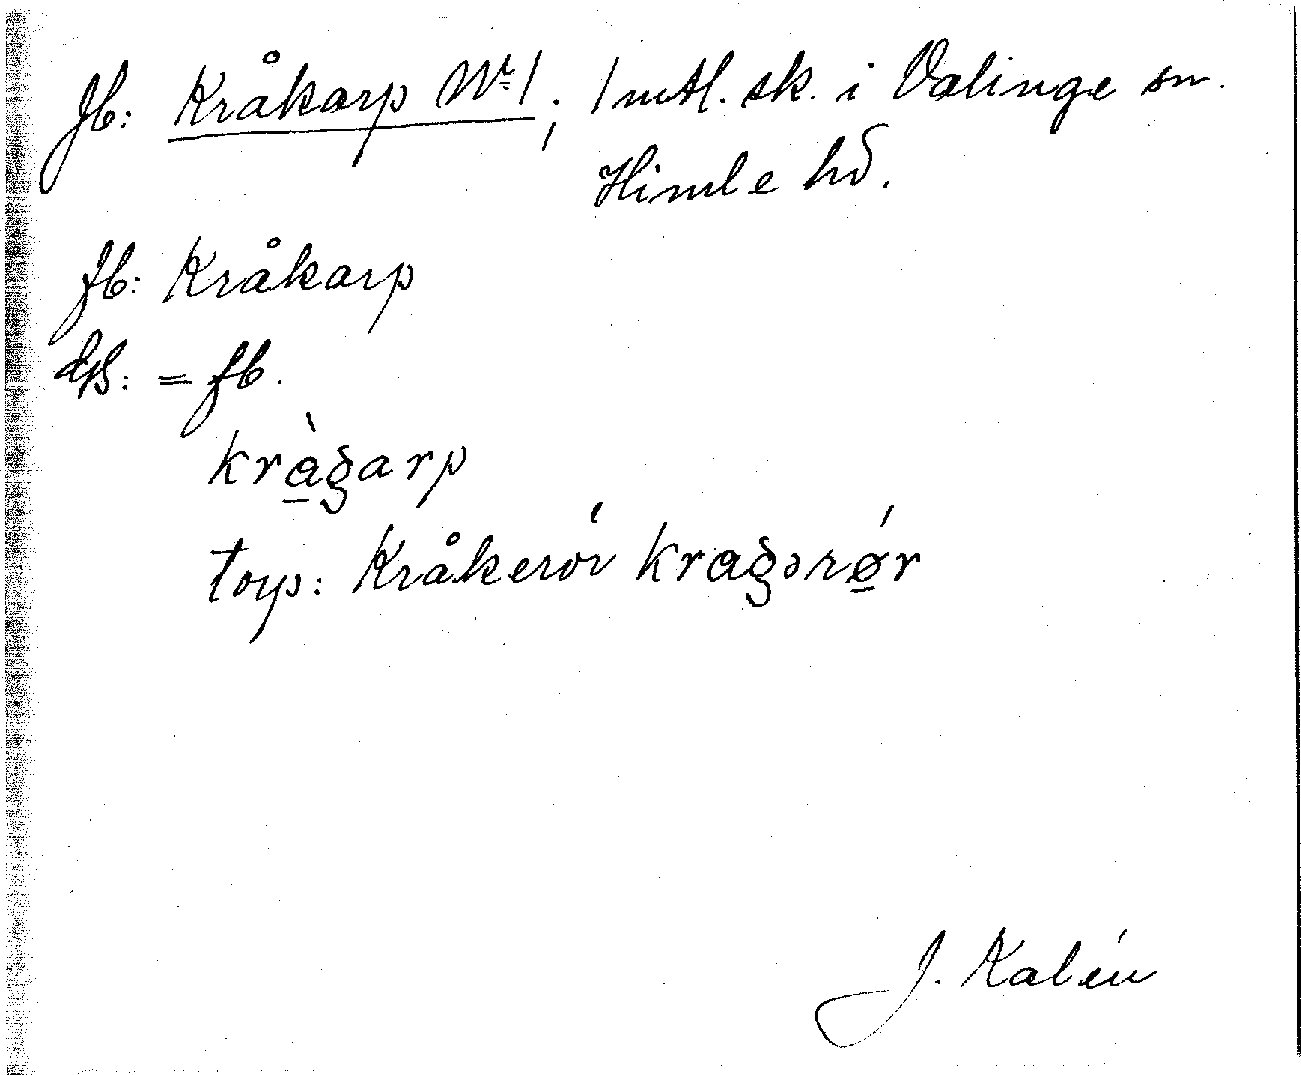 Jb: Kråkarp Nr 1; 1 mtl. sk. i Valinge sn.
Himle hd.
fb: Kråkarp
dfb: = fb.
kràgarp
torp: Kråkerör kragərǿr
J. Kalén